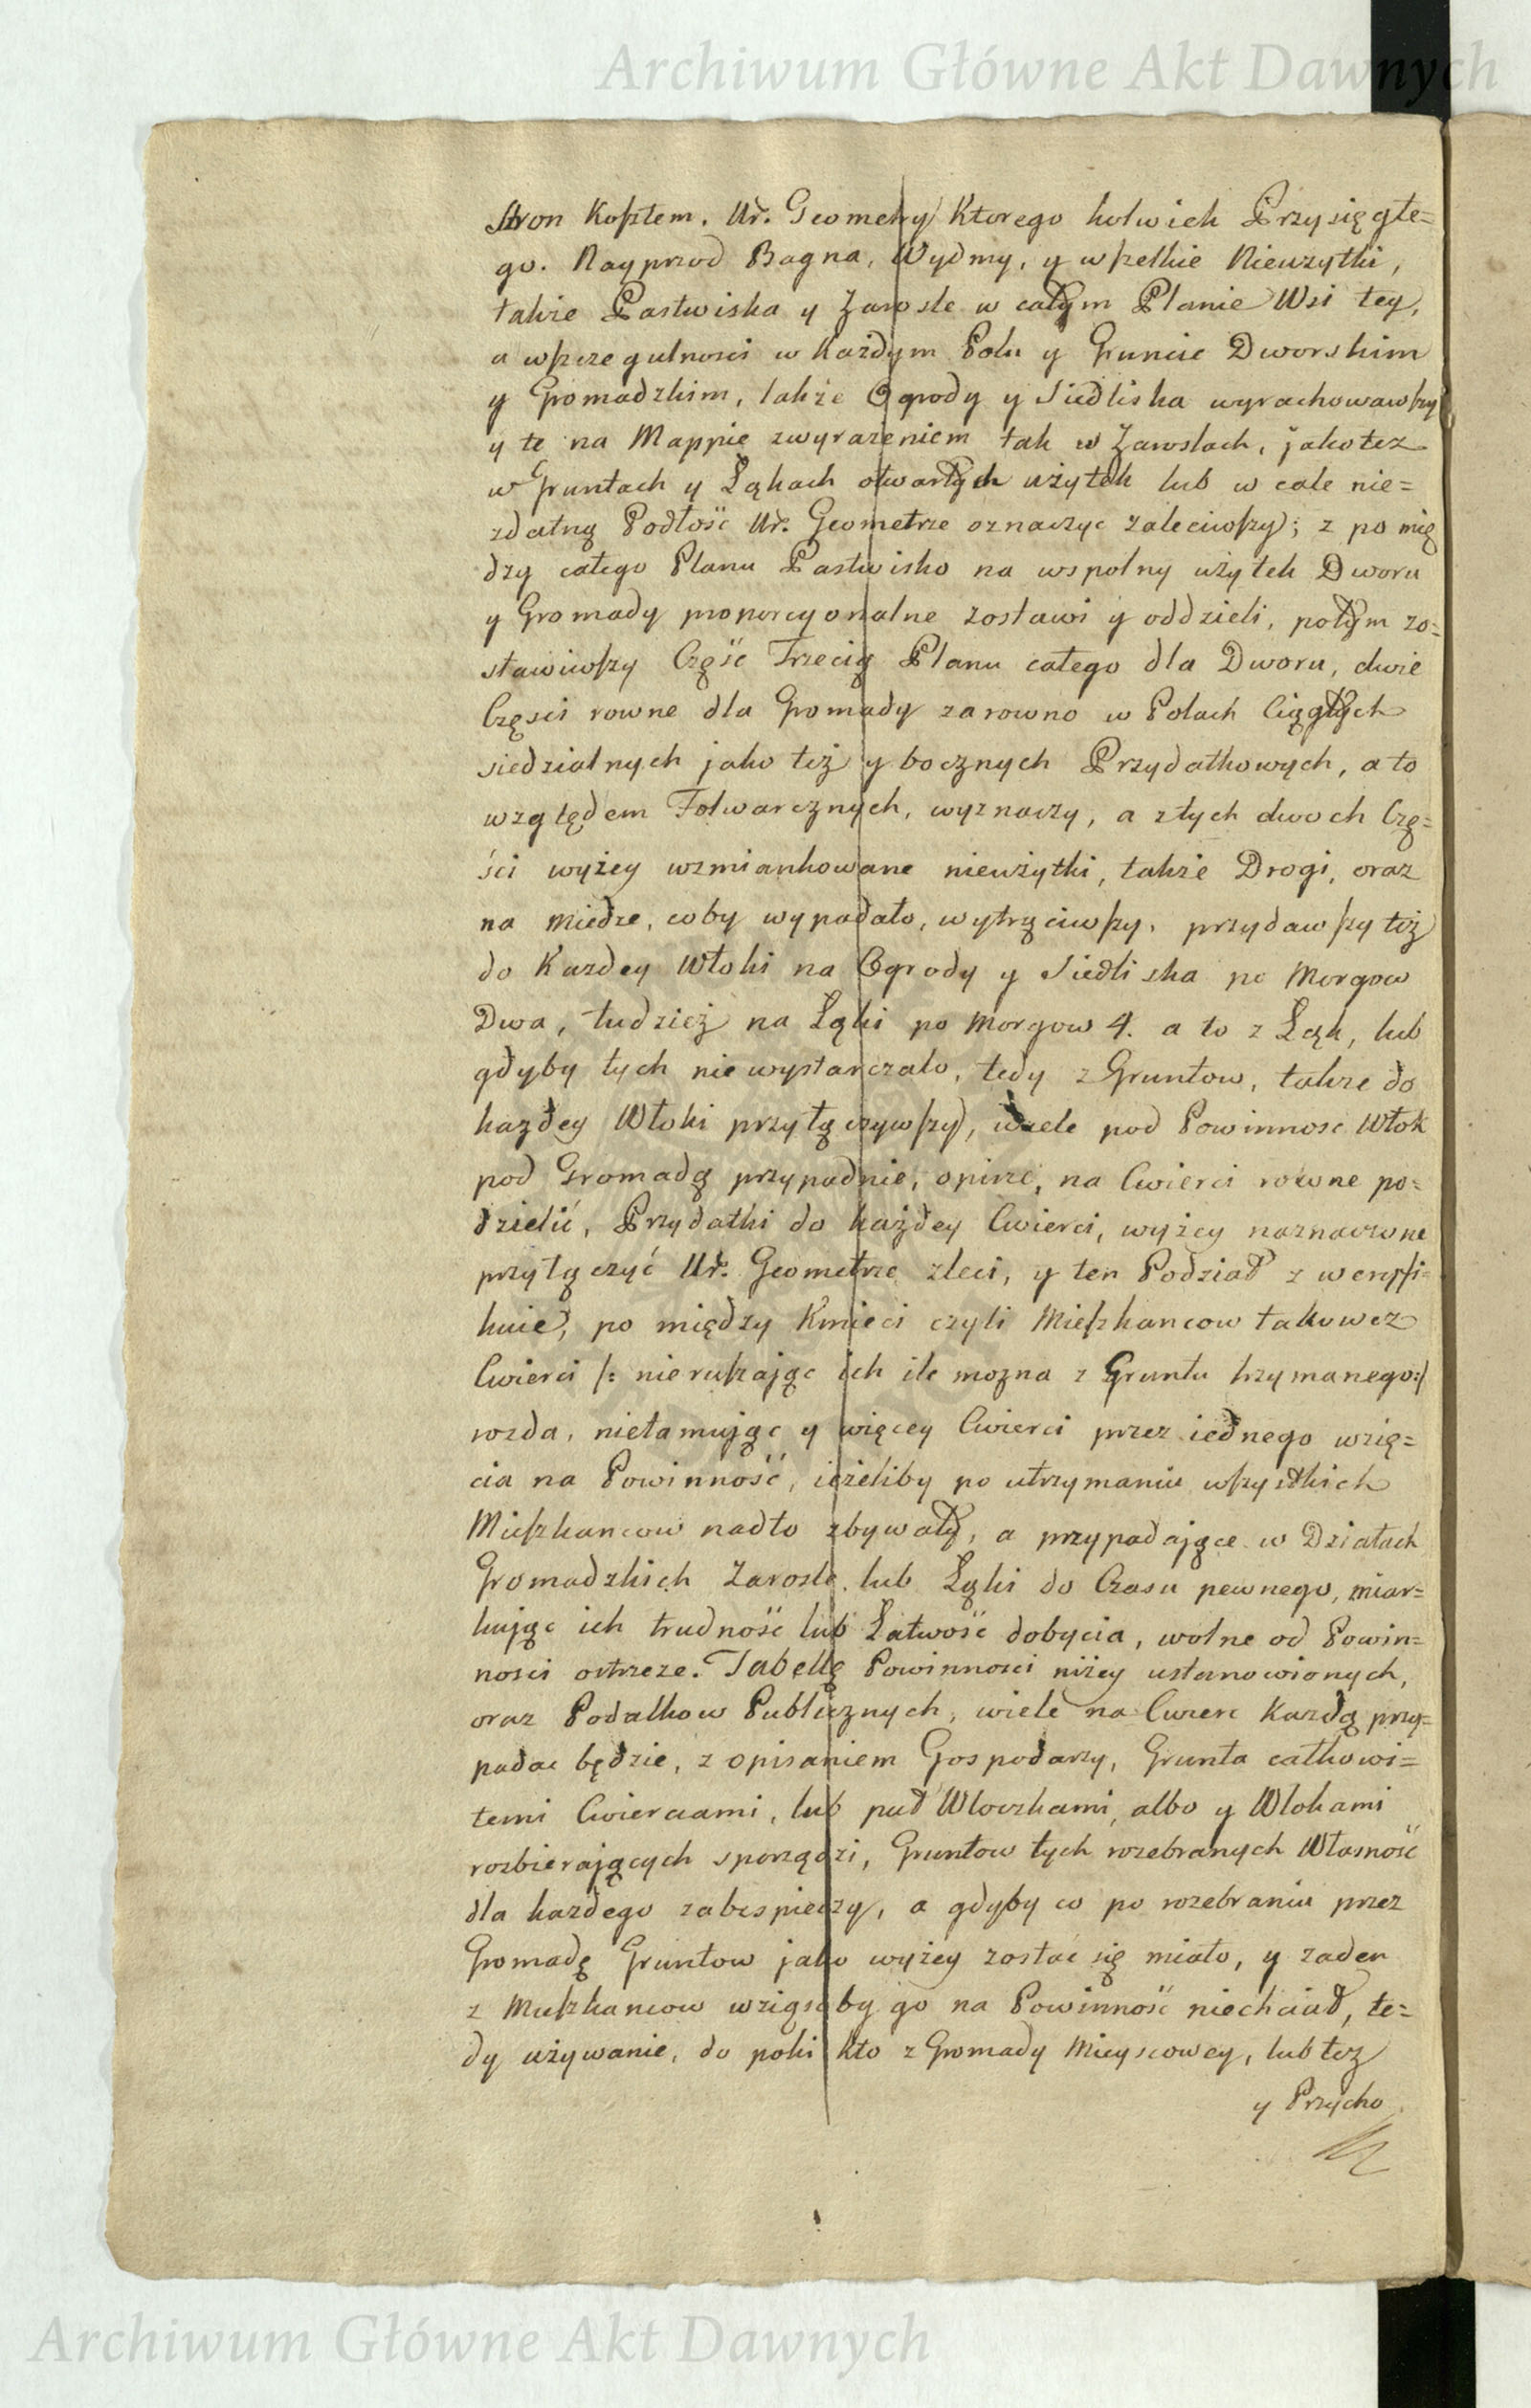 Archiwum Główne Akt Dawnych
Stron Kosztem. Ur. Geometry Ktorego kolwiek Przysięgłe=
go. Nayprzod Bagna, Wydmy, y wszelkie Nieużytki,
także Pastwiska y Zarosle w całym Planie Wsi tey,
a wszczegulności w każdym Polu y Gruncie Dworskim
y Gromadzkim, także Ogrody y Siedliska wyrachowawszy
y te na Mappie zwyrażeniem tak w Zaroslach, jakotez
w Gruntach y Łąkach otwartych użytek lub w cale nie=
zdatną Podłość Ur. Geometrze oznaczyc zaleciwszy; z po mię
dzy całego Planu Pastwisko na wspolny użytek Dworu
y Gromady proporcyonalne zostawi y oddzieli, potym zo=
stawiwszy Część Trzecią Planu całego dla Dworu, dwie
Części rowne dla Gromady zarowno w Polach Ciągłych
siedzialnych jako też y bocznych Przydatkowych, a to
względem Folwarcznych, wyznaczy, a z tych dwoch Czę=
ści wyżey wzmiankowane nieużytki, także Drogi, oraz
na miedze, coby wypadało, wytrąciwszy, przydawszy też
do Kazdey Włoki na Ogrody y Siedliska po Morgow
Dwa, tudzież na Łąki po Morgow 4. a to z Łąk, lub
gdyby tych nie wystarczało, tedy z Gruntow, także do
każdey Włoki przyłączywszy, wiele pod Powinnosc Włok
pod Gromadą przypadnie, opisze, na Cwierci rowne po=
dzielić, Przydatki do każdey Cwierci, wyżey naznaczone
przyłączyć Ur. Geometrze zleci, y ten Podział zweryfi=
kuie, po między Kmieci czyli Mieszkancow takowez
Cwierci /: nieruszając ich ile mozna z Gruntu trzymanego:/
rozda, nietamując y więcey Cwierci przez iednego wzię=
cia na Powinność, ieżeliby po utrzymaniu wszystkich
Mieszkancow nadto zbywały, a przypadające w Działach
Gromadzkich Zarosle lub Łąki do Czasu pewnego, miar=
kując ich trudność lub Łatwość dobycia, wolne od Powin=
nosci ostrzeze. Tabellę Powinnosci niżey ustanowionych,
oraz Podatkow Publicznych, wiele na Cwierc Każdą przy=
padac będzie, z opisaniem Gospodarzy, Grunta całkowi=
temi Cwierciami, lub puł Włoczkami, albo y Włokami
rozbierających sporządzi, Gruntow tych rozebranych Własność
dla każdego zabespieczy, a gdyby co po rozebraniu przez
Gromadę Gruntow jako wyżey zostać się miało, y zaden
z Mieszkancow wziąść by go na Powinność niechciał, te=
dy używanie, do poki kto z Gromady Mieyscowey, lub też
y Przycho
Archiwum Główne Akt Dawnych